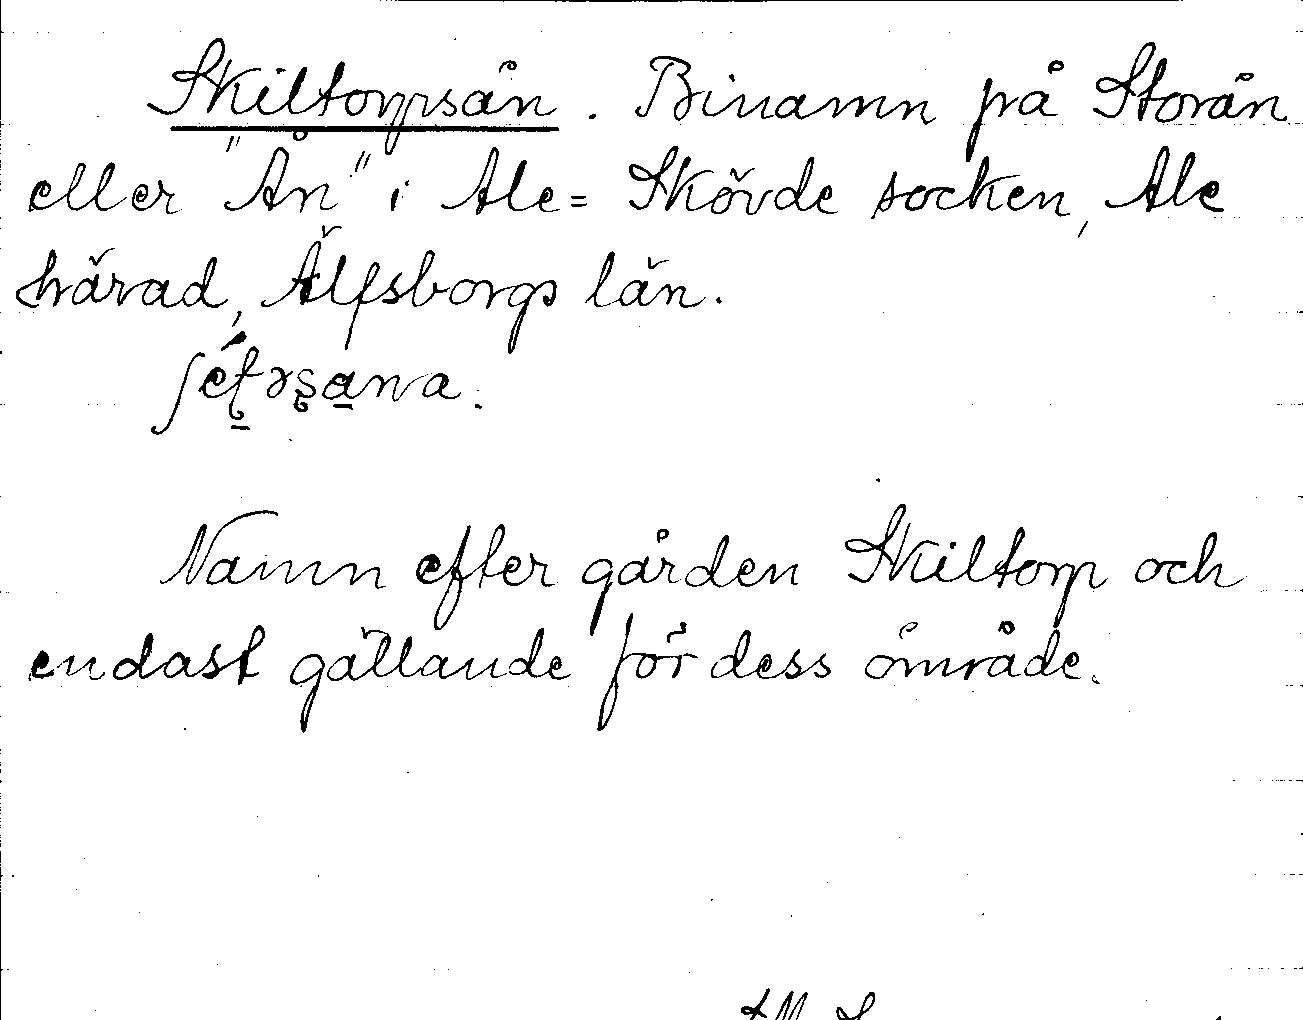 Skiltorpsån. Binamn på Storån
eller "Ån" i Ale= Skövde socken, Ale
härad, Älfsborgs län.
Namn efter gården Skiltorp och
endast gällande för dess område.